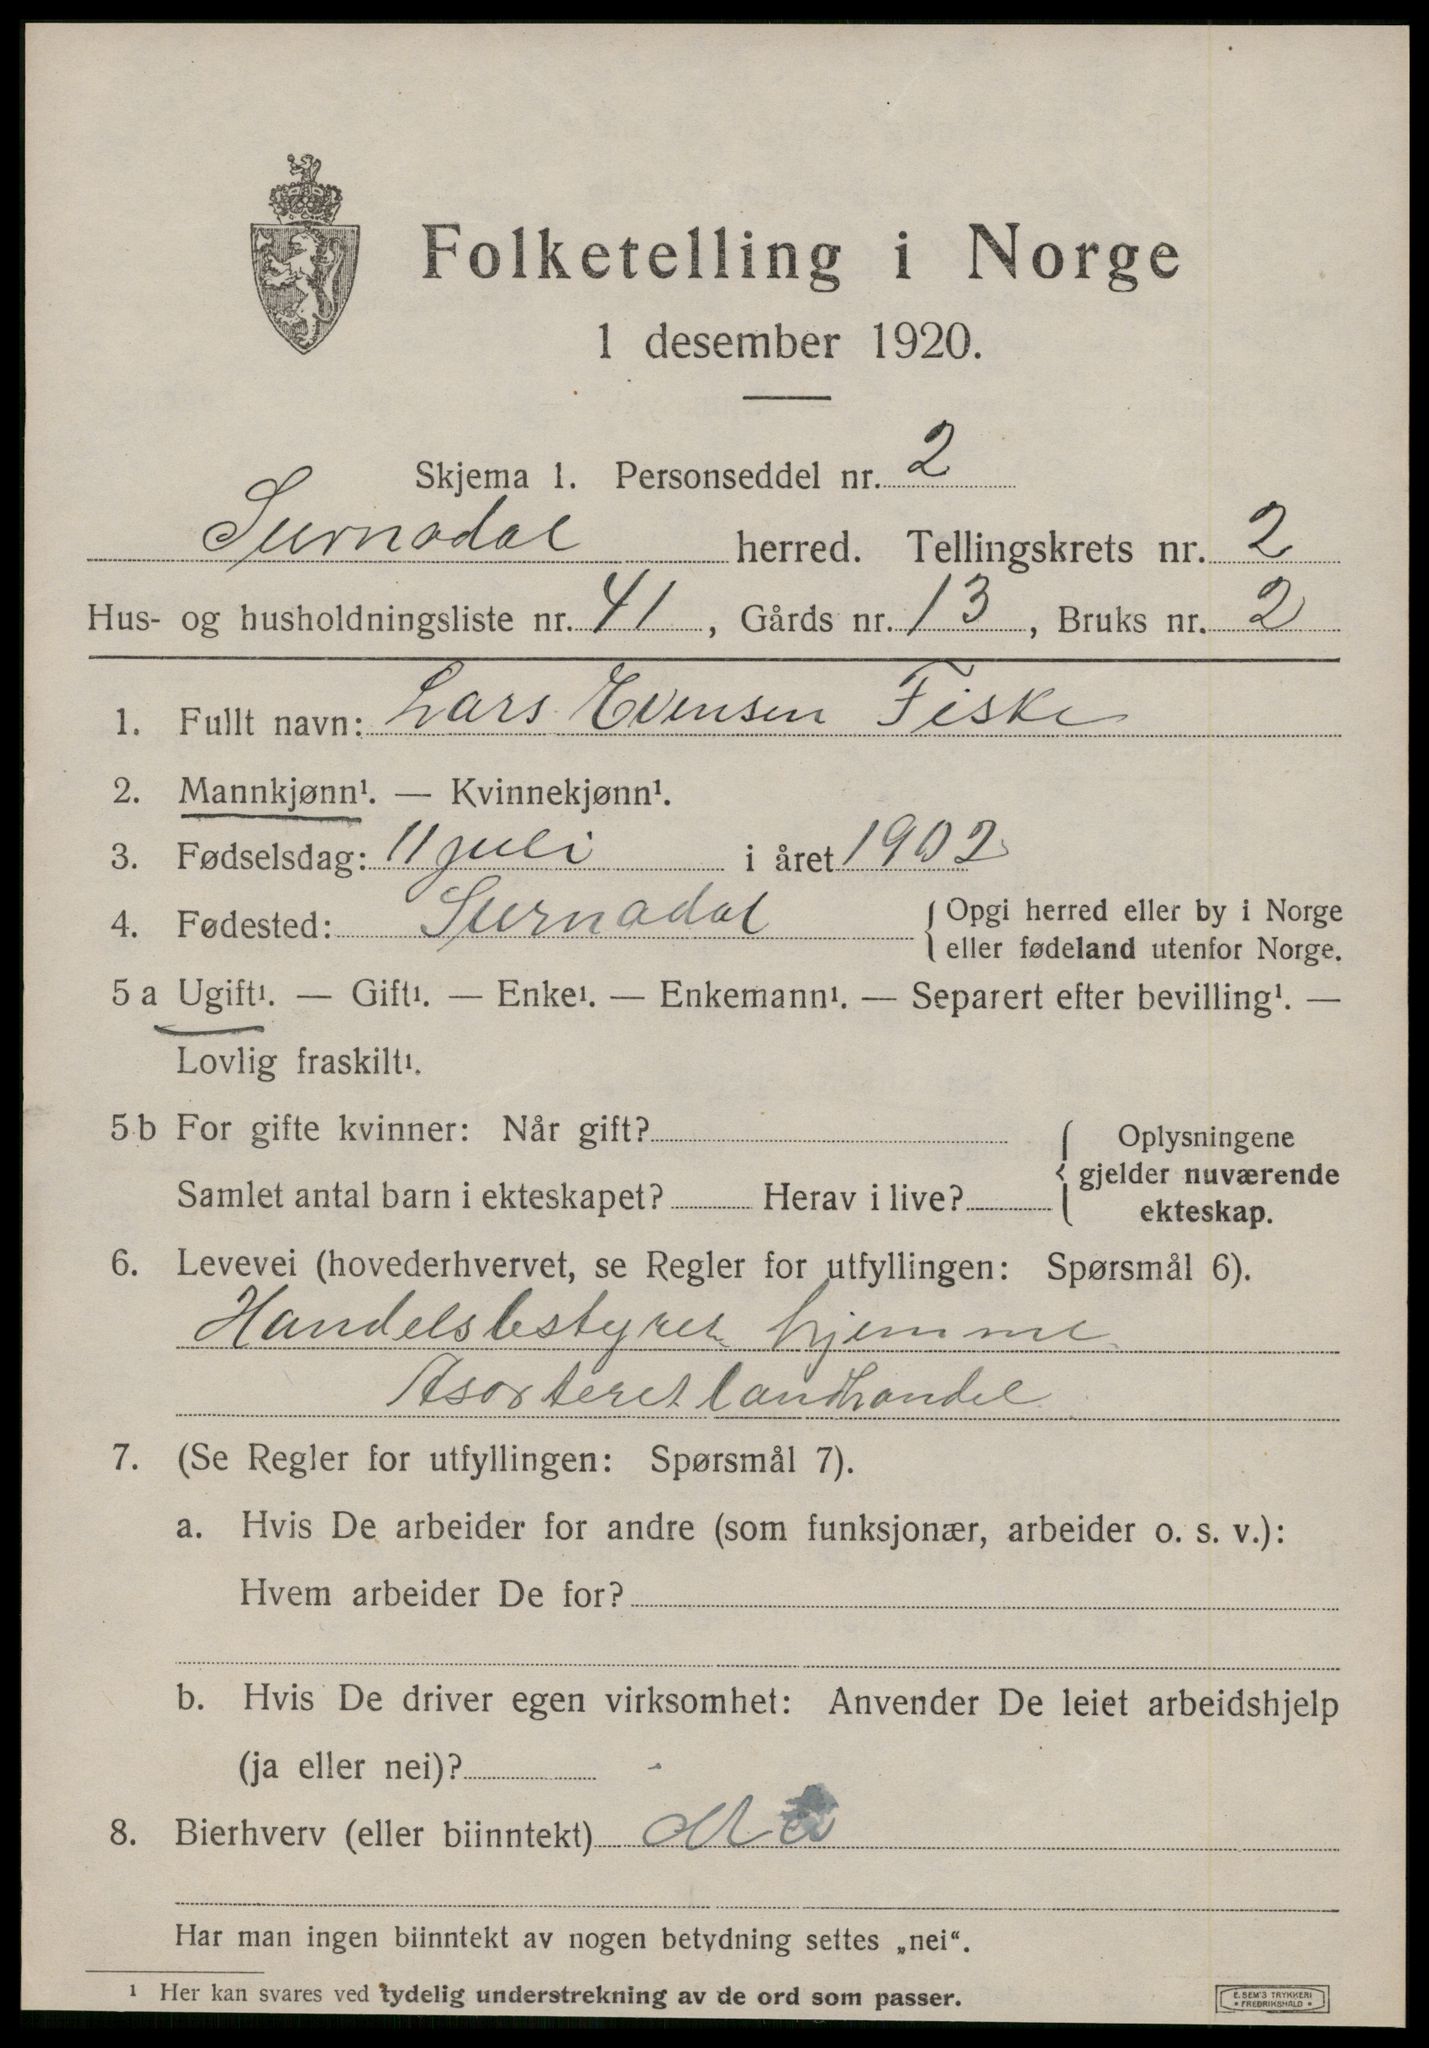 Folketelling i Norge
1 desember 1920.
Skjema 1. Personseddel nr. 2
Surnadal herred. Tellingskrets nr. 2
Hus- og husholdningsliste nr. 41, Gårds nr. 13, Bruks nr. 2
1. Fullt navn: Lars Evensen Fiske
2. Mannkjønn¹. — Kvinnekjønn¹.
3. Fødselsdag: 11 juli i året 1902
4. Fødested: Surnadal { Opgi herred eller by i Norge
eller fødeland utenfor Norge.
5 a Ugift¹. — Gift¹. — Enke¹. — Enkemann¹. — Separert efter bevilling¹. —
Lovlig fraskilt¹.
5 b For gifte kvinner: Når gift? { Oplysningene
gjelder nuværende
Samlet antal barn i ekteskapet? Herav i live? ekteskap.
6. Levevei (hovederhvervet, se Regler for utfyllingen: Spørsmål 6).
Handelsbestyrer hjemme
Asorteret landhandel
7. (Se Regler for utfyllingen: Spørsmål 7).
a. Hvis De arbeider for andre (som funksjonær, arbeider o. s. v.):
Hvem arbeider De for?
b. Hvis De driver egen virksomhet: Anvender De leiet arbeidshjelp
(ja eller nei)?
8. Bierhverv (eller biinntekt)
Har man ingen biinntekt av nogen betydning settes „nei“.
¹ Her kan svares ved tydelig understrekning av de ord som passer.
E. SEM'S TRYKKERI
• FREDRIKSHALD •